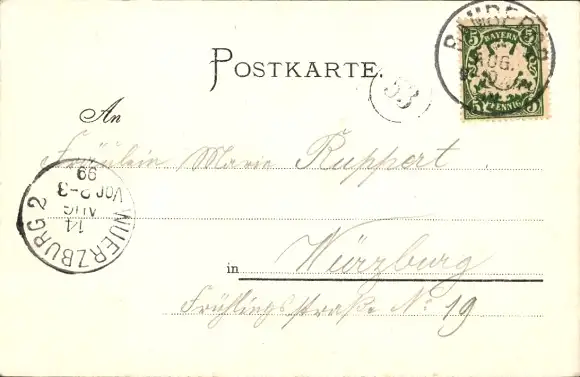 POSTKARTE.
BAMBERG
AUG.
5 BAYERN 5
5 PFENNIG 5
53
An
Fräulein Marie Ruppert.
WUERZBURG 2
14
AUG
Vor 2-3
99
in Würzburg
Frühlingsstraße No 19